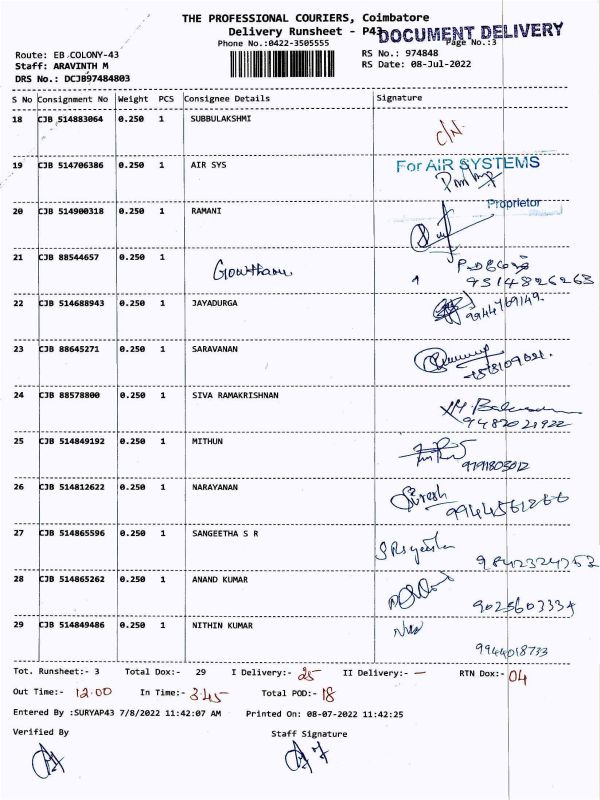 THE PROFESSIONAL COURIERS, Coimbatore
Delivery Runsheet - P43
DOCUMENT DELIVERY
Phone No.:0422-3505555
Page No.:3
Route: EB COLONY-43
RS No.: 974848
Staff: ARAVINTH M
RS Date: 08-Jul-2022
DRS No.: DCJB97484803
S No Consignment No Weight PCS Consignee Details Signature
18 CJB 514883064 0.250 1 SUBBULAKSHMI
19 CJB 514706386 0.250 1 AIR SYS For AIR SYSTEMS
Proprietor
20 CJB 514900318 0.250 1 RAMANI
21 CJB 88544657 0.250 1 Gowtham
9514826263
22 CJB 514688943 0.250 1 JAYADURGA 9944769149
23 CJB 88645271 0.250 1 SARAVANAN
24 CJB 88578800 0.250 1 SIVA RAMAKRISHNAN
9487021922
25 CJB 514849192 0.250 1 MITHUN
9791803012
26 CJB 514812622 0.250 1 NARAYANAN Suresh
27 CJB 514865596 0.250 1 SANGEETHA S R
28 CJB 514865262 0.250 1 ANAND KUMAR
29 CJB 514849486 0.250 1 NITHIN KUMAR
9944018733
Tot. Runsheet:- 3 Total Dox:- 29 I Delivery:- 25 II Delivery:- — RTN Dox:- 04
Out Time:- 12.00 In Time:- 3.45 Total POD:- 18
Entered By :SURYAP43 7/8/2022 11:42:07 AM Printed On: 08-07-2022 11:42:25
Verified By Staff Signature